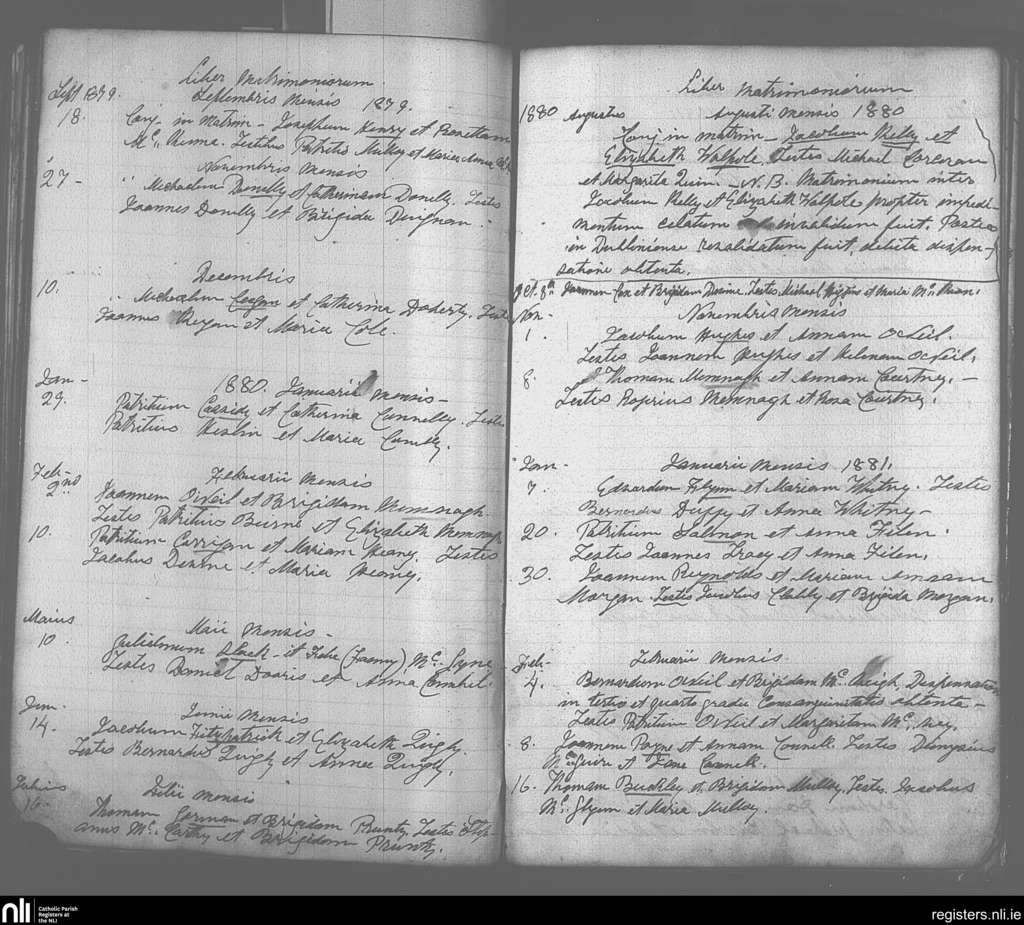 Liber Matrimoniorum
Sept 1879. Septembris Mensis 1879.
18. Conj. in matrim - Josephum Henry et
Mc Testibus Patritio Mulloy et Maria Anna
Novembris Mensis
27 - " Michaelem Donelly et Catherinam Donelly. Testes
Joannes Donelly et Brigida Duignan.
Decembris
10. " Michaelum et Catherina Doherty. Testes
Joannes Regan et Maria Cole.
Jan - 1880. Januarii Mensis -
29. Patritium Cassidy et Catherina Connelly. Testes
Patritius Heslin et Maria
Feb - Februarii Mensis
2nd Joannem O'Neil et Brigidam Monnagh.
Testes Patritius Beirne et Elizabeth
10. Patritium Carrigan et Mariam Keany. Testes
Jacobus Devine et Maria Keany.
Maius Maii Mensis -
10. Gulielmum Slack - et (Fanny) Mc
Testes Daniel et Anna
Jun - Junii Mensis
14. Jacobum Fitzpatrick et Elizabeth Quigly.
Testes Bernardus Quigly et Annee Quigly.
Julius Julii Mensis
16. Thomam Gorman et Brigidam Prunty Testes
Mc Carthy et Brigidam Prunty.
Liber Matrimoniorum
1880 Augustus Augusti Mensis 1880
Conj in matrim - Jacobum Kelly et
Elizabeth Walpole. Testes Michael Corcoran
et Margarita Quin. - N.B. Matrimonium inter
Jacobum Kelly et Elizabeth Walpole propter impedi-
mentum celatum invalidum fuit. Postea
in Dubliniense revalidatum fuit, debita dispen-
satione obtenta.
Oct. 8th Joannem Cox et Brigidam Devine. Testes Michael Higgins et Maria Mc
Nov - Novembris Mensis
1. Jacobum Hughes et Annam O'Neil.
Testes Joannem Hughes et Helenam O'Neil.
8. Thomam Monnagh et Annam Courtney. -
Testes Rogerius Monnagh et Rosa Courtney.
Jan - Januarii Mensis 1881.
7. Edwardum Flynn et Mariam Whitney. Testes
Bernardus Duffy et Anna Whitney -
20. Patritium Salmon et Anna
Testes Joannes Tracy et Anna
30. Joannem Reynolds et Mariam Annam
Morgan. Testes Jacobus Clabby et Brigida Morgan.
Feb - Februarii Mensis
4. Bernardum O'Neil et Brigidam Mc Dispensatione
in tertio et quarto gradu Consanguinitatis obtenta -
Testes Patritium O'Neil et Margaritam Mc
8. Joannem Payne et Annam Connell. Testes Dionysius
McGuire et Jane Connell.
16. Thomam Buckley et Brigidam Mulloy. Testes Jacobus
Mc Glynn et Maria Mulloy.
nli Catholic Parish
Registers at
the NLI
registers.nli.ie